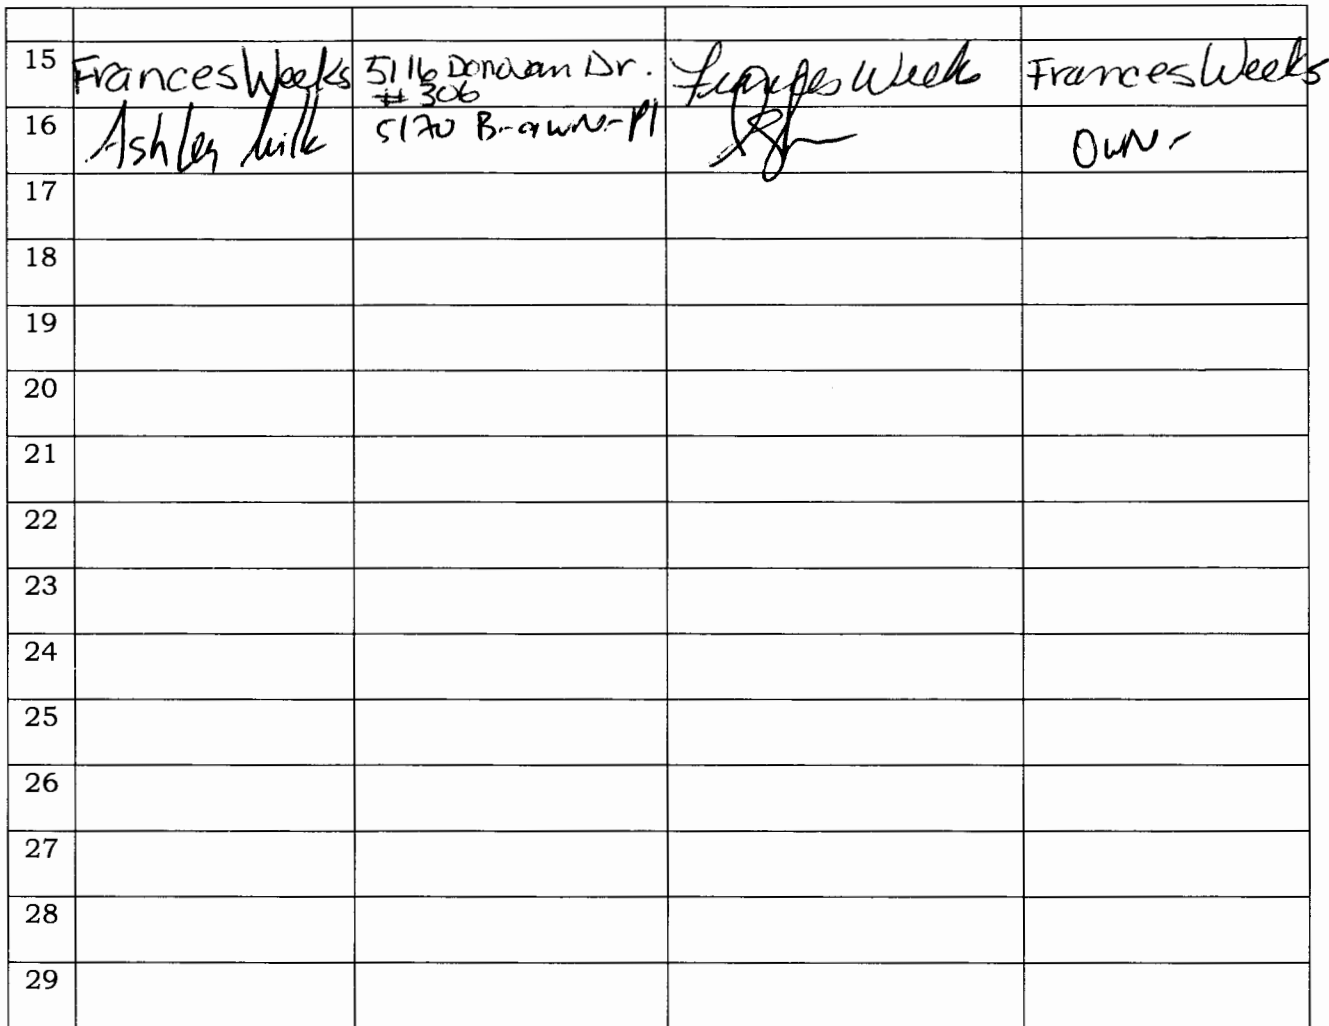 15 Frances Weeks 5116 Donovan Dr. Frances Weeks Frances Weeks
# 306
16 Ashley 5170 Brawner Pl Owner
17
18
19
20
21
22
23
24
25
26
27
28
29